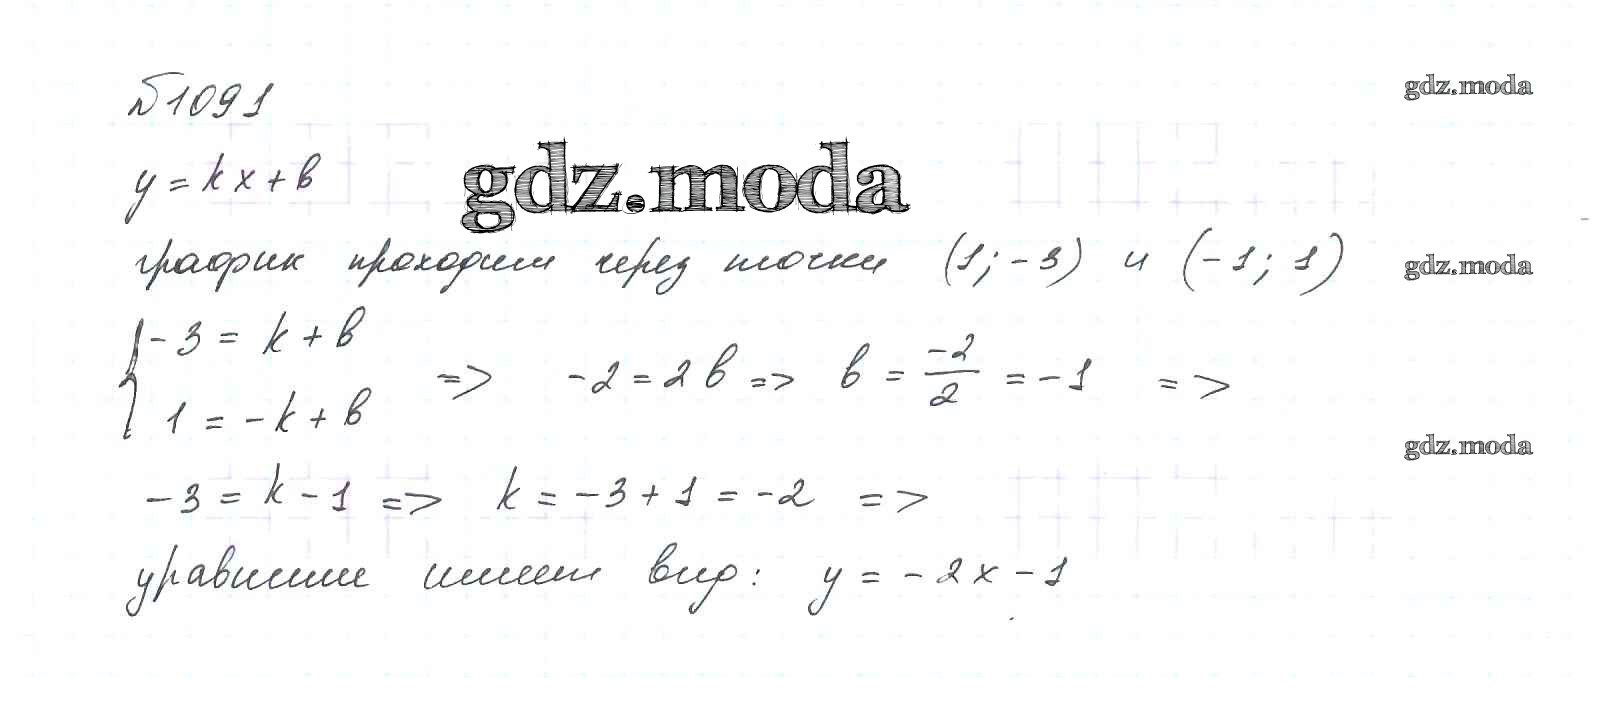 №1091
gdz.moda
y = kx + b
gdz.moda
график проходит через точки (1; -3) и (-1; 1)
gdz.moda
-3 = k + b
1 = -k + b
=> -2 = 2b => b = -2/2 = -1 =>
gdz.moda
-3 = k - 1 => k = -3 + 1 = -2 =>
уравнение имеет вид: y = -2x - 1